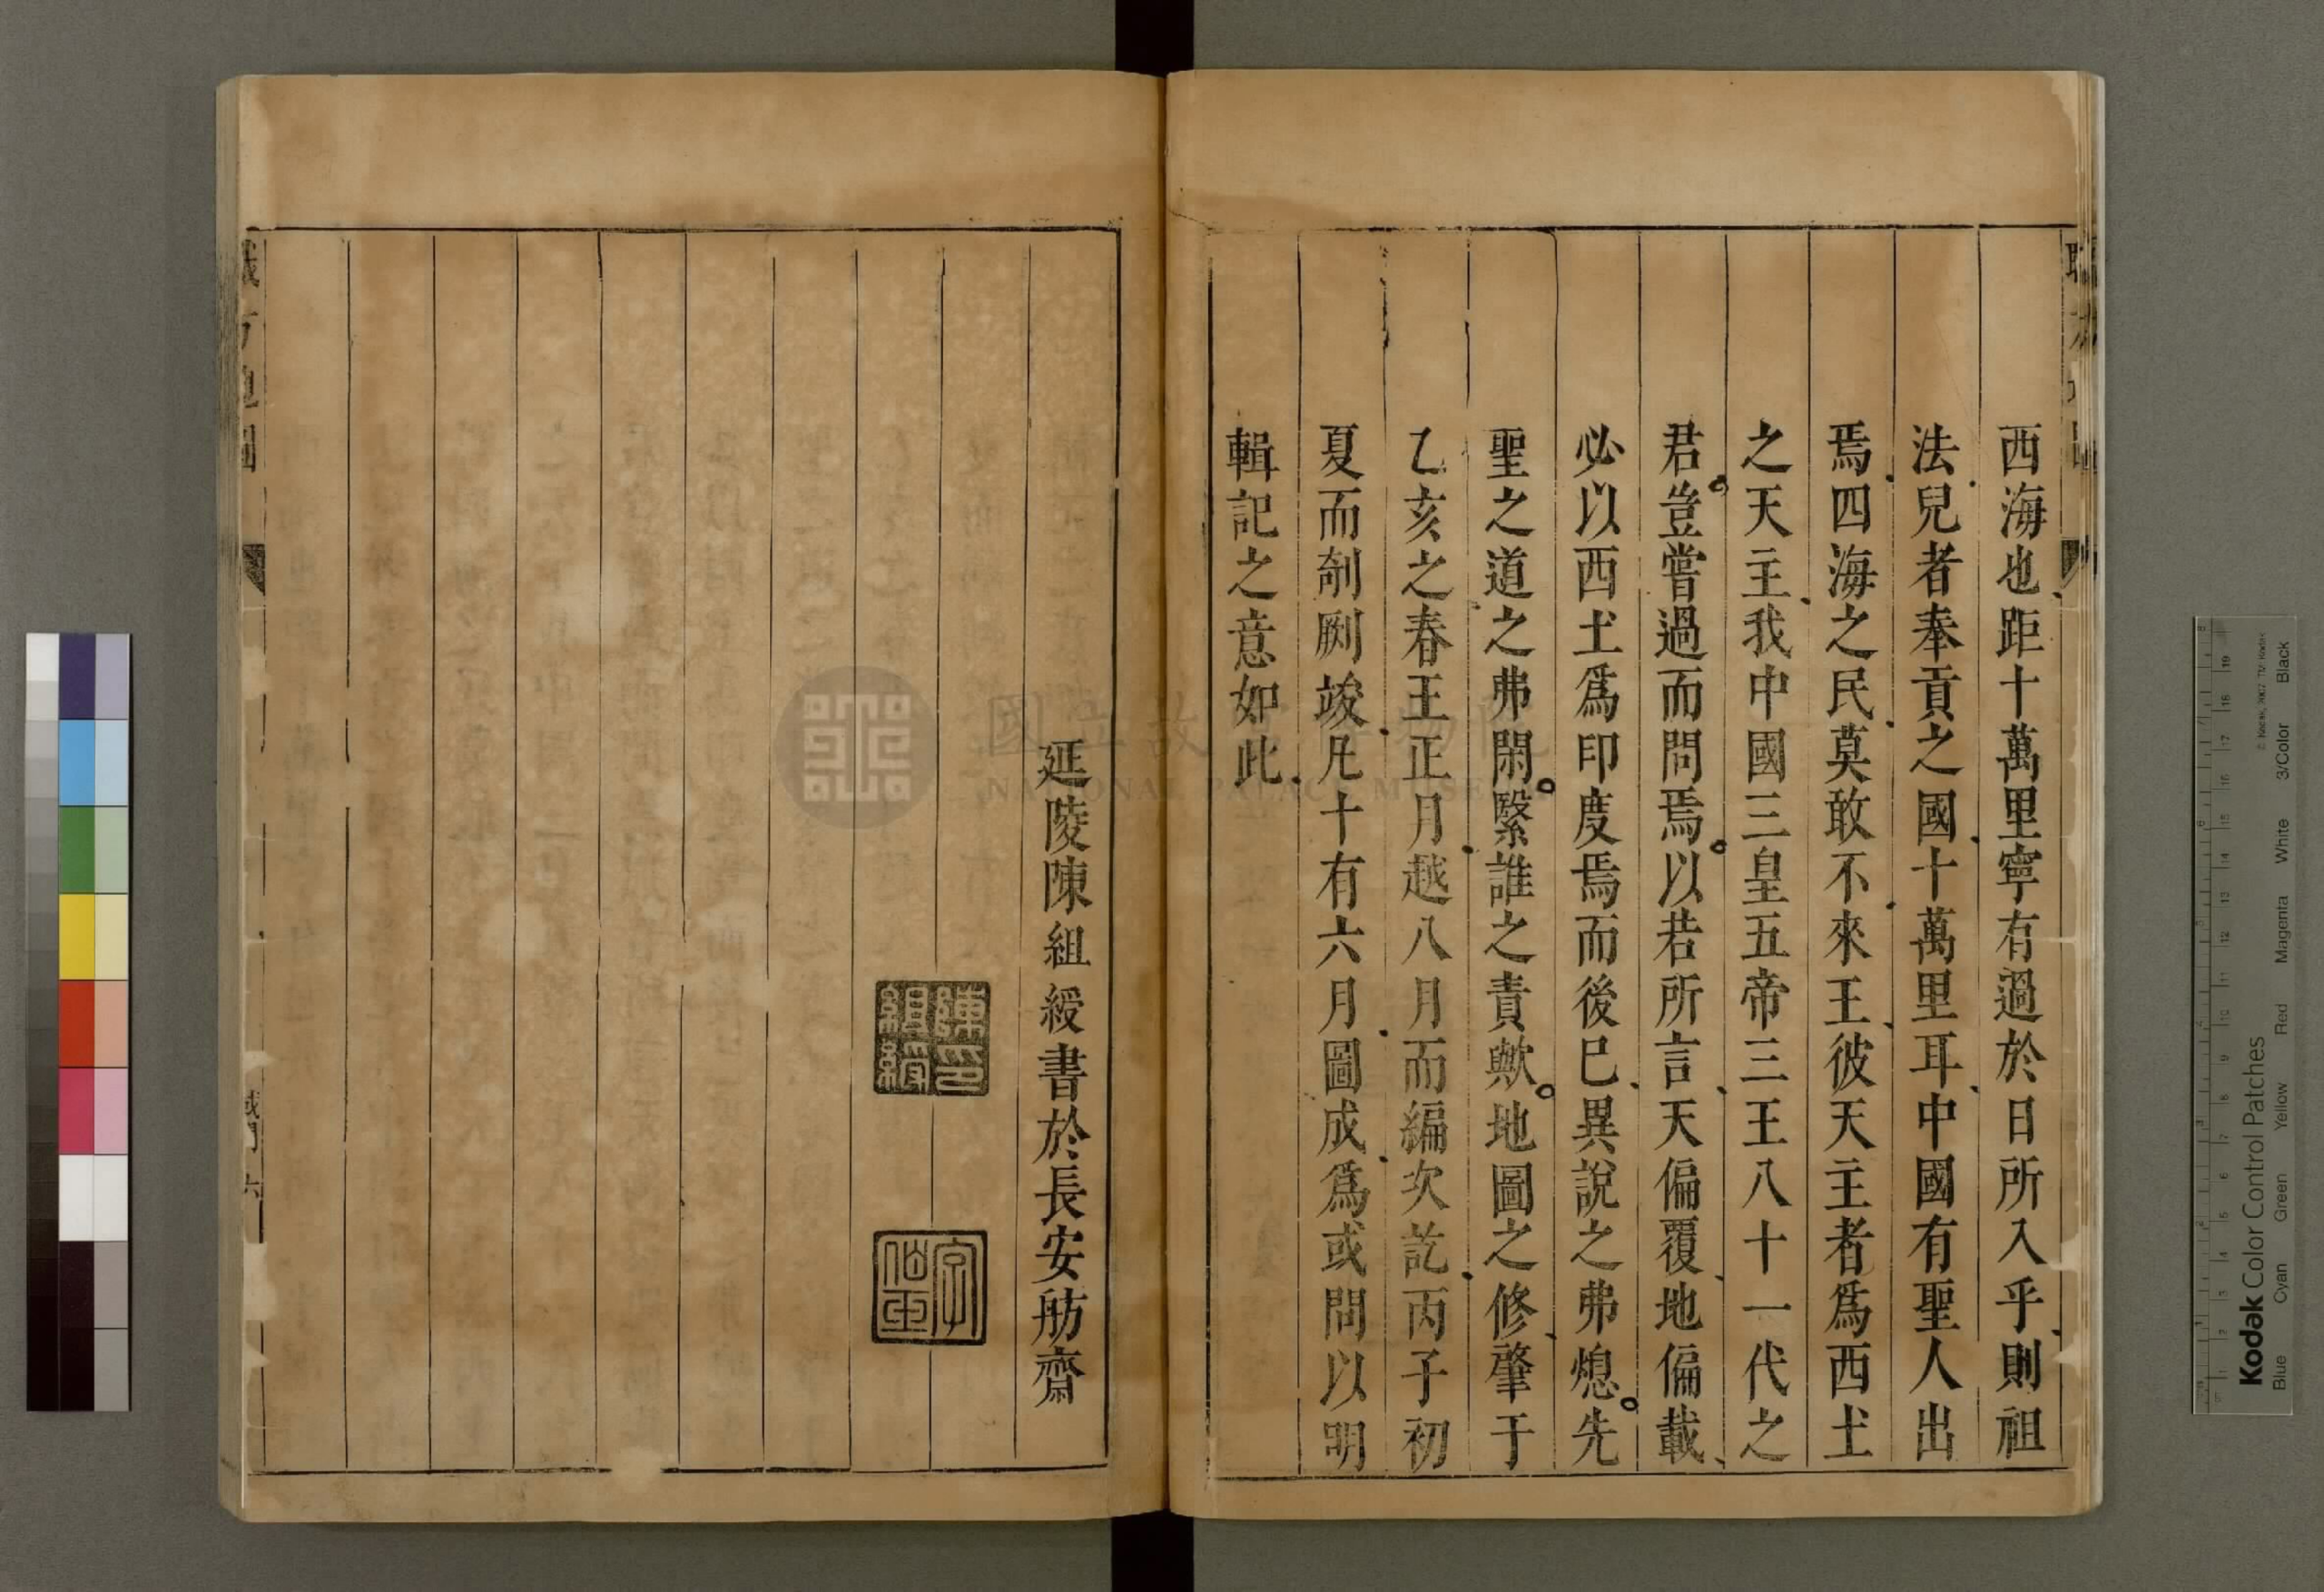 西海也距十萬里寧有過於日所入乎則祖
法兒者奉貢之國十萬里耳中國有聖人出
焉四海之民莫敢不來王彼天主者爲西土
之天主我中國三皇五帝三王八十一代之
君豈嘗過而問焉以若所言天偏覆地偏載
必以西土爲印度焉而後已異說之弗熄先
聖之道之弗閑繄誰之責歟地圖之修肇于
乙亥之春王正月越八月而編次訖丙子初
夏而剞劂竣凡十有六月圖成爲或問以明
輯記之意如此
延陵陳組綬書於長安舫齋
陳印組綬
國立故
NATIONAL PALACE MUSEUM
Kodak Color Control Patches
Blue Cyan Green Yellow Red Magenta White 3/Color Black